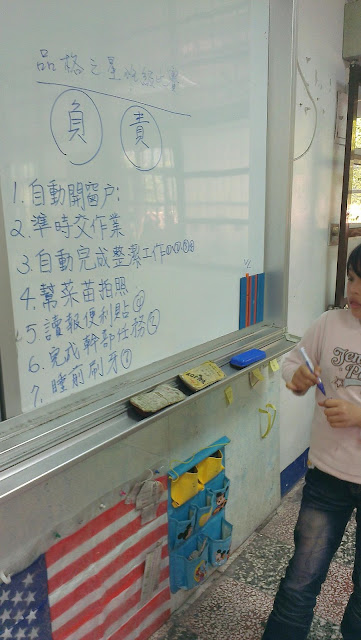 品格之星
負 責
1. 自動開窗户;
2. 準時交作業
3. 自動完成整潔工作
4. 幫菜苗拍照
5. 讀報便利貼
6. 完成幹部任務
7. 睡前刷牙